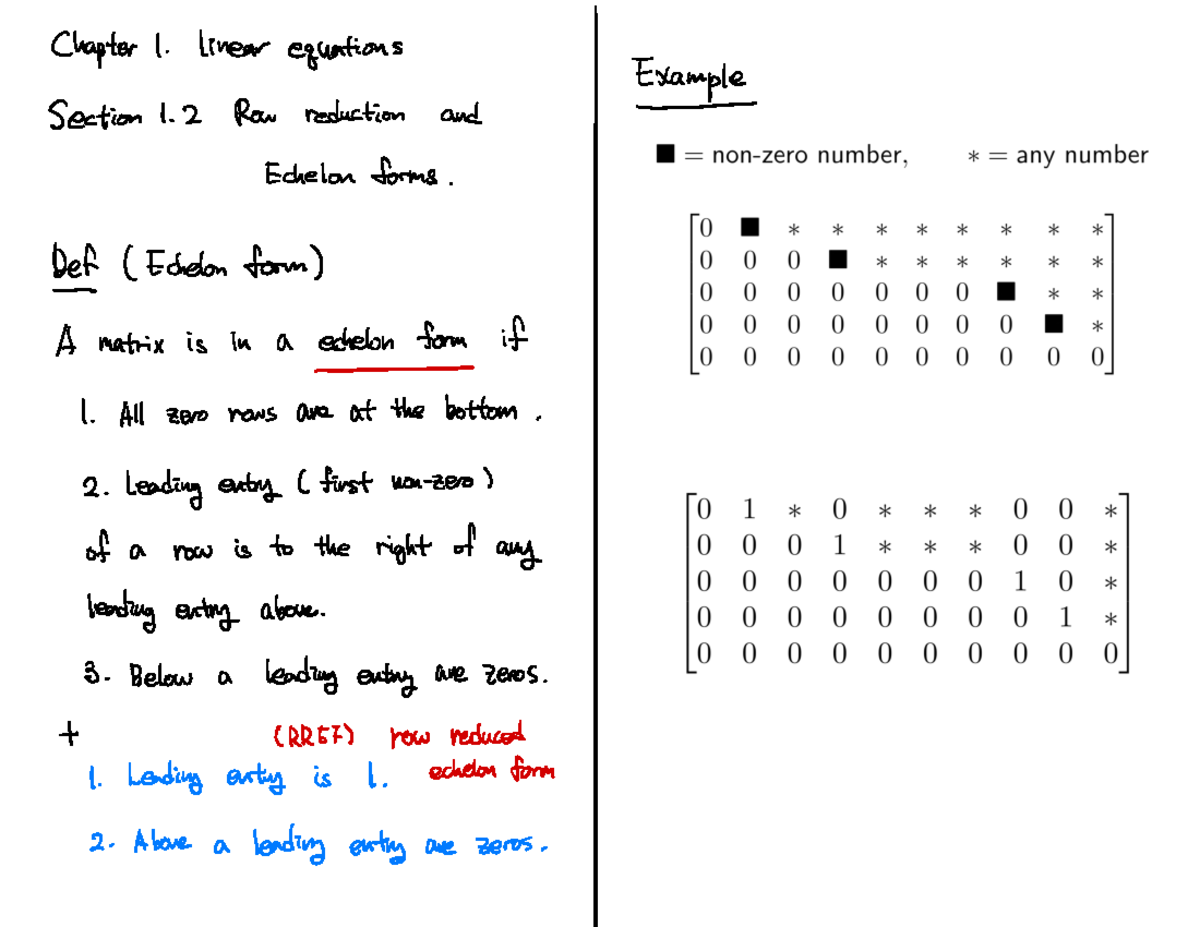 Chapter 1. linear equations
Section 1.2 Row reduction and
Echelon forms.
Def (Echelon form)
A matrix is in a echelon form if
1. All zero rows are at the bottom.
2. Leading entry (first non-zero)
of a row is to the right of any
leading entry above.
3. Below a leading entry are zeros.
+ (RREF) row reduced
echelon form
1. Leading entry is 1.
2. Above a leading entry are zeros.
Example
■ = non-zero number, * = any number
0 ■ * * * * * * * *
0 0 0 ■ * * * * * *
0 0 0 0 0 0 0 ■ * *
0 0 0 0 0 0 0 0 ■ *
0 0 0 0 0 0 0 0 0 0
0 1 * 0 * * * 0 0 *
0 0 0 1 * * * 0 0 *
0 0 0 0 0 0 0 1 0 *
0 0 0 0 0 0 0 0 1 *
0 0 0 0 0 0 0 0 0 0